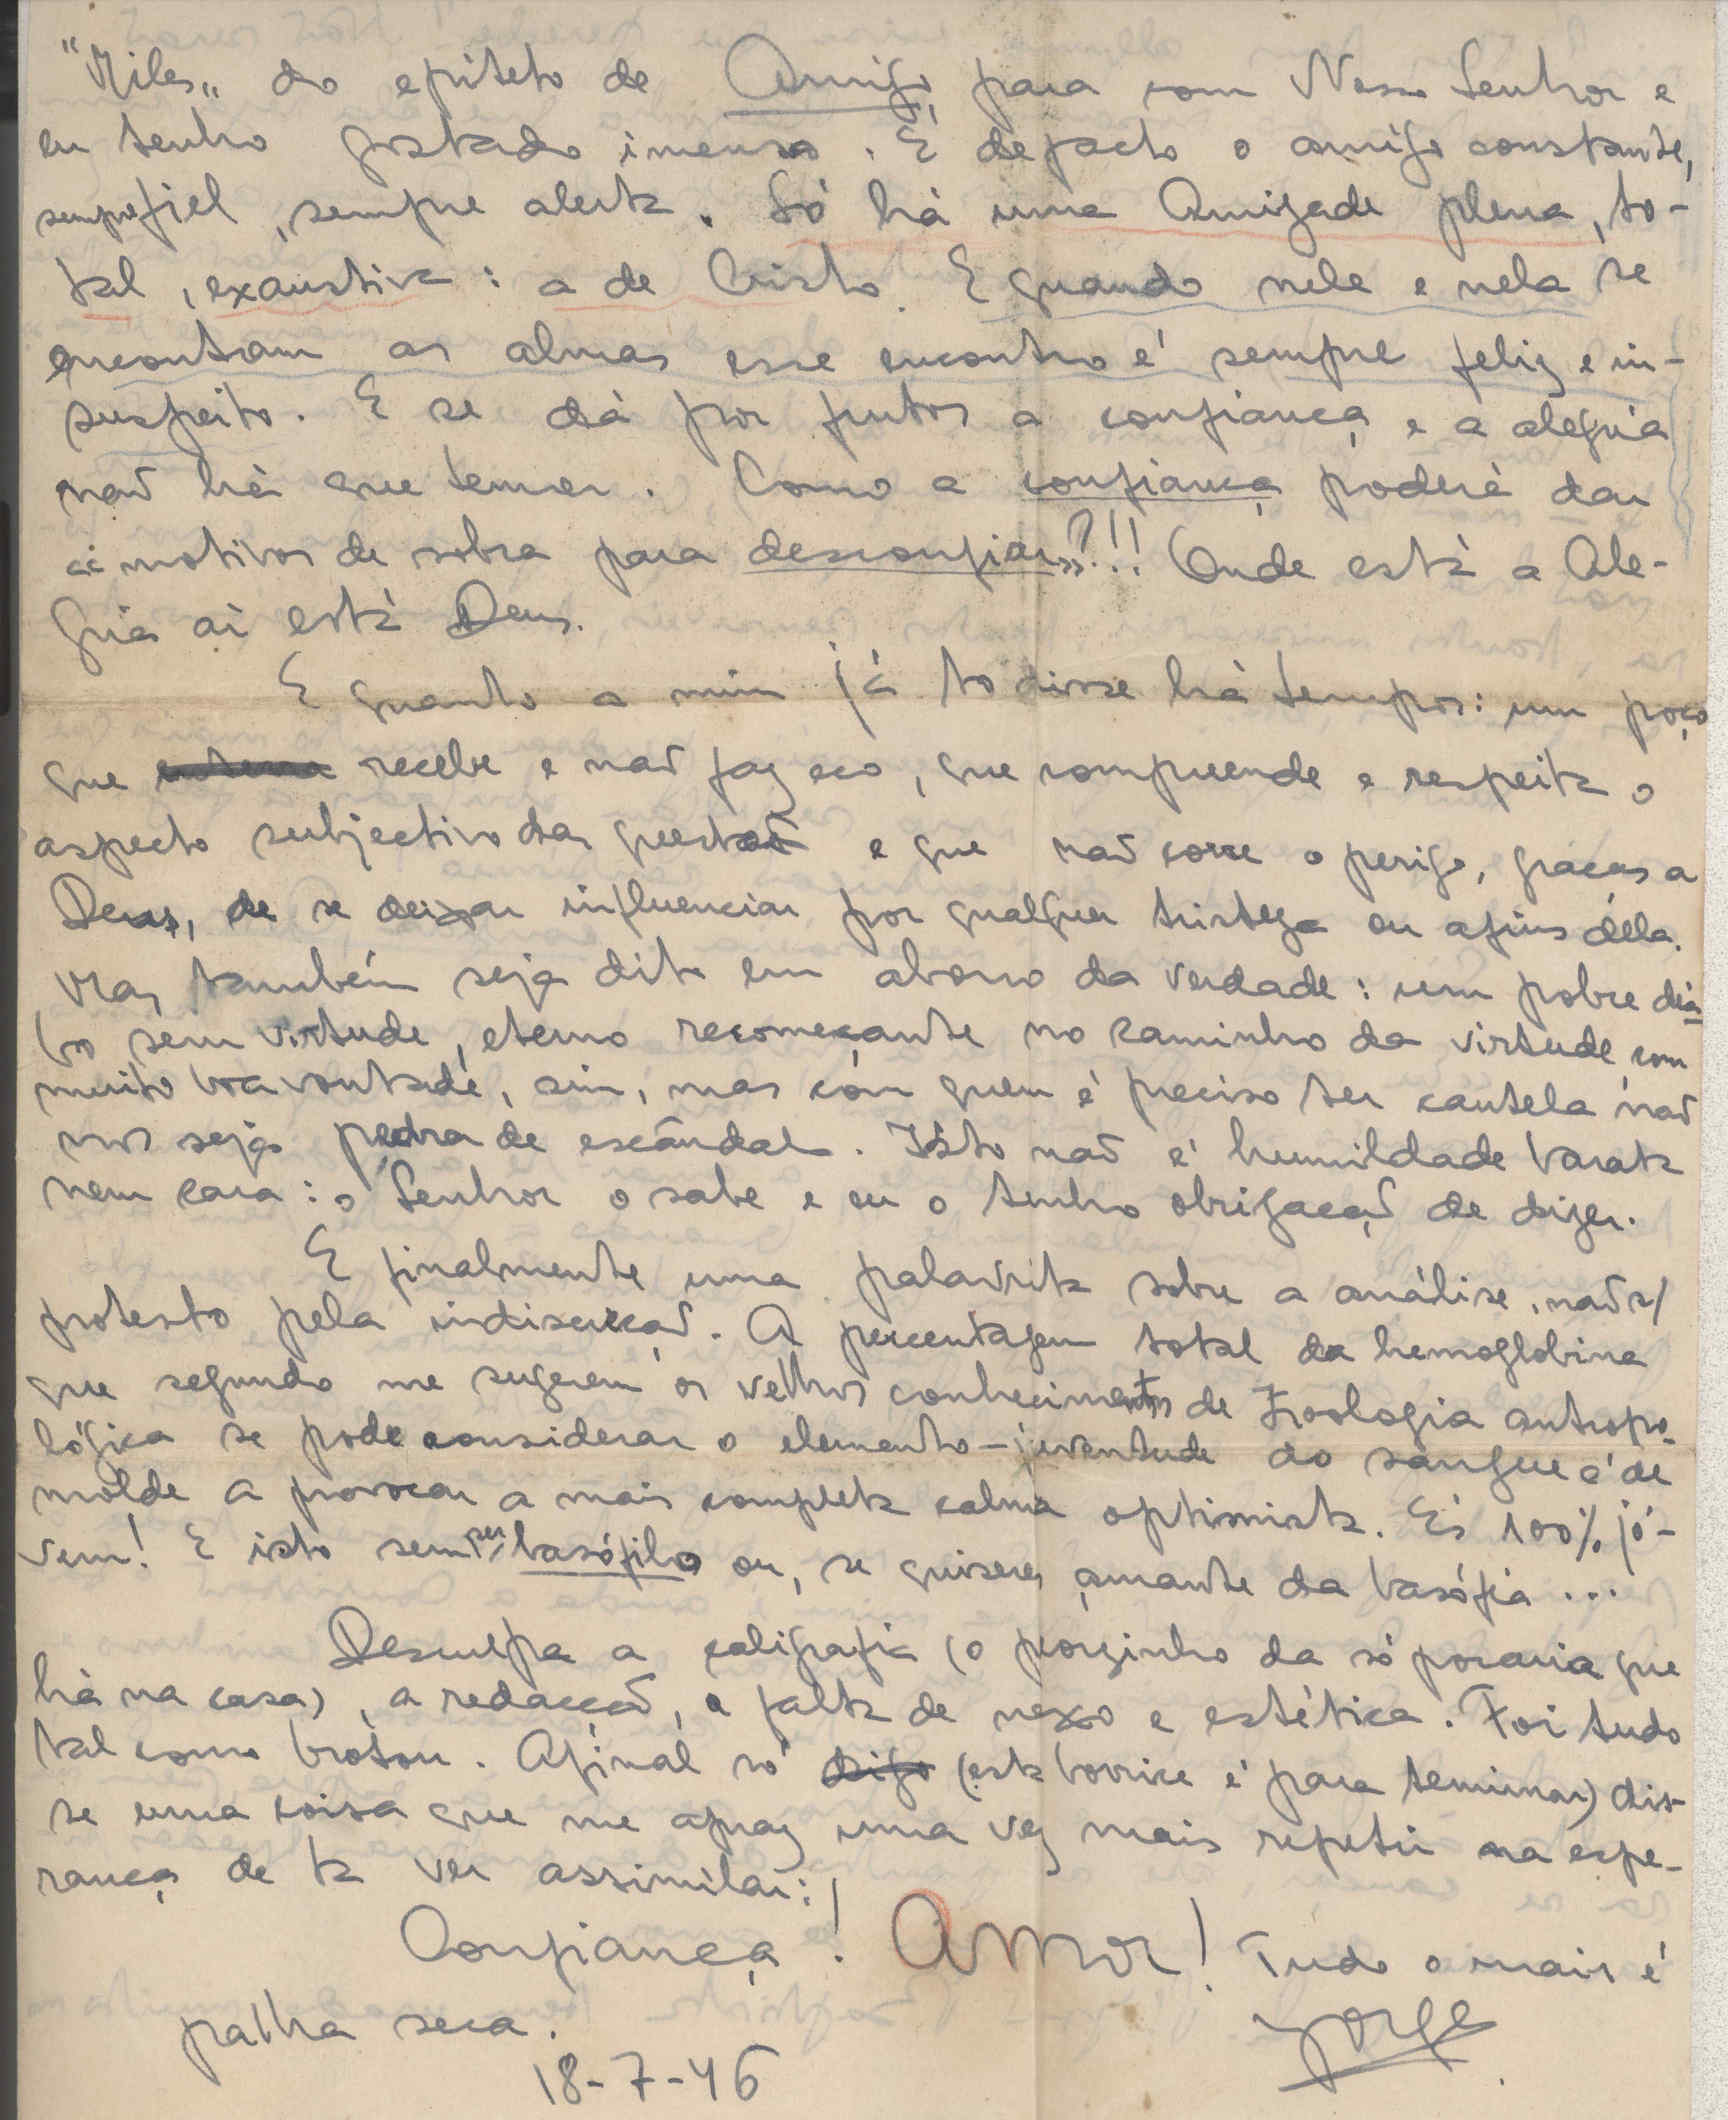 "Miles" do epíteto de Amigo para com Nosso Senhor e
eu tenho gostado imenso. É de facto o amigo constante,
sempre fiel, sempre alerta. Só há uma Amizade plena, to-
tal, exaustiva: a de Cristo. E quando nele e nela se
encontram as almas esse encontro é sempre feliz e in-
suspeito. E se dá por frutos a confiança e a alegria
não há que temer. Como a confiança poderá dar
«motivos de sobra para desconfiar»?!!! Onde está a Ale-
gria aí está Deus.
E quanto a mim já to disse há tempos: um poço
que recebe e não faz eco, que compreende e respeita o
aspecto subjectivo da questão e que não corre o perigo, graças a
Deus, de se deixar influenciar por qualquer tristeza ou afins dela.
Mas também seja dito em abono da verdade: um pobre dia-
bo sem virtude, eterno recomeçante no caminho da virtude com
muito boa vontade, sim, mas com quem é preciso ter cautela não
nos seja pedra de escândalo. Isto não é humildade barata
nem cara: o Senhor o sabe e eu o tenho obrigação de dizer.
E finalmente uma palavrita sobre a análise, não s/
protesto pela indiscreção. A percentagem total da hemoglobina
que segundo me sugerem os velhos conhecimentos de Zoologia antropo-
lógica se pode considerar o elemento-juventude do sangue é de
molde a provocar a mais completa calma optimista. És 100% jó-
vem! E isto sem ser basófilo ou, se quiseres, amante da basófia ...
Desculpa a caligrafia (o porzinho da só porcaria que
há na casa), a redacção, a falta de nexo e estética. Foi tudo
tal como brotou. Afinal só digo (esta borrice é para terminar) dis-
se uma coisa que me apraz uma vez mais repetir na espe-
rança de ta ver assimilar:
Confiança! Amor! Tudo o mais é
palha seca.
Jorge
18-7-46